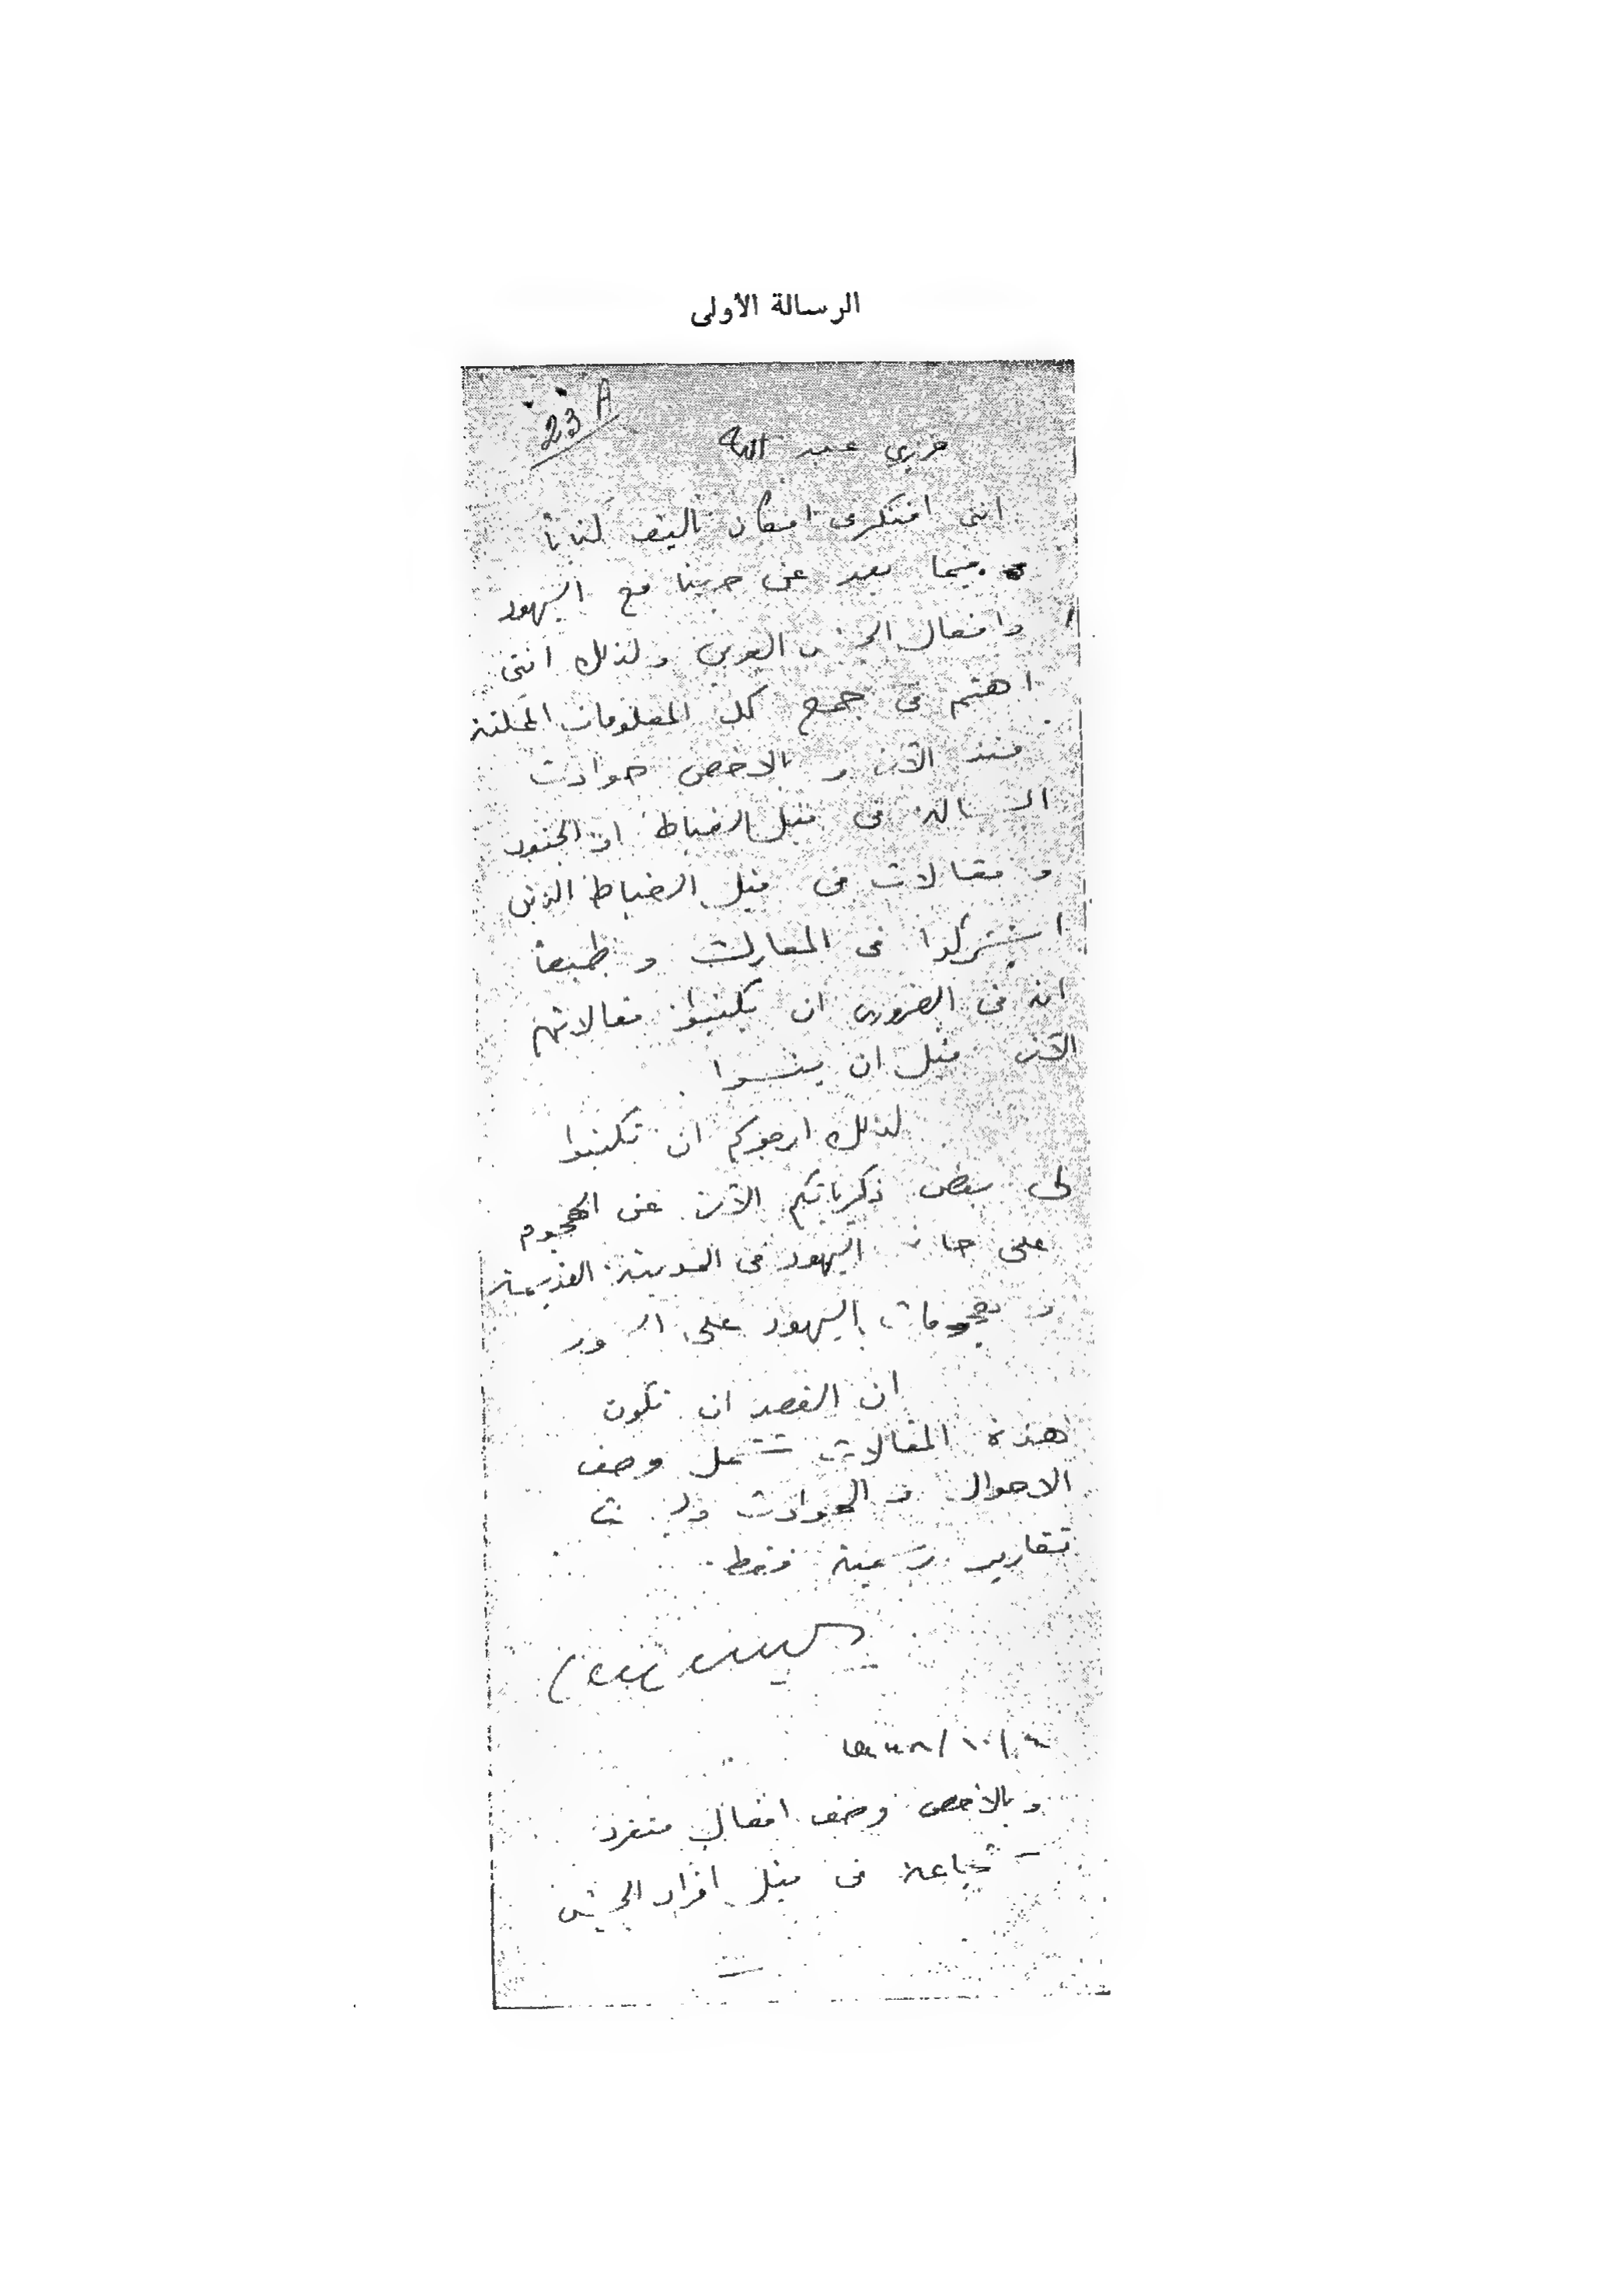 الرسالة الأولى
23 A
عزيزي عبد الله
انني افتكر في امكان تاليف كتاباً
فيما بعد عن حربنا مع اليهود
وافعال الجيش العربي ولذلك انني
اهتم في جمع كل المعلومات الممكنة
منذ الآن و بالاخص حوادث
البسالة من قبل الضباط او الجنود
و مقالات من قبل الضباط الذين
اشتركوا في المعارك و طبيعاً
انه من الضروري ان يكتبوا مقالاتهم
الآن قبل ان ينسوا .
لذلك ارجوكم ان تكتبوا
لي بعض ذكرياتكم الآن عن الهجوم
على حارة اليهود في المدينة القديمة
و هجومات اليهود على السور
ان القصد ان تكون
هذه المقالات تشمل وصف
الاحوال و الحوادث وليست
تقارير رسمية فقط .
١٩٤٨/١٠/
و بالاخص وصف افعال منفرد
شجاعة من قبل افراد الجيش